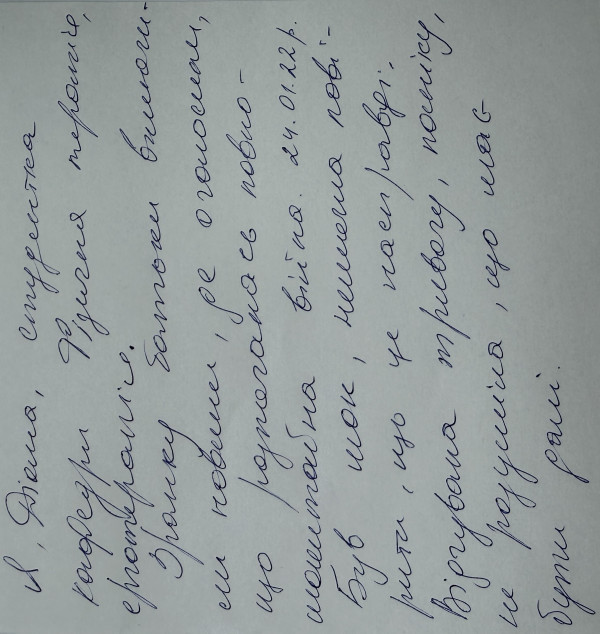 Я, Діана, студентка
кафедри Фізичня терапія,
ерготерапія.
Зранку батьки вимкну-
ли новини, де оголосили,
що розпочалась повно-
маштабна війна. 24.01.22р.
Був шок, немогла пові-
рити, що це насправді.
Відчувала тривогу, паніку,
не розуміла, що має
бути далі.